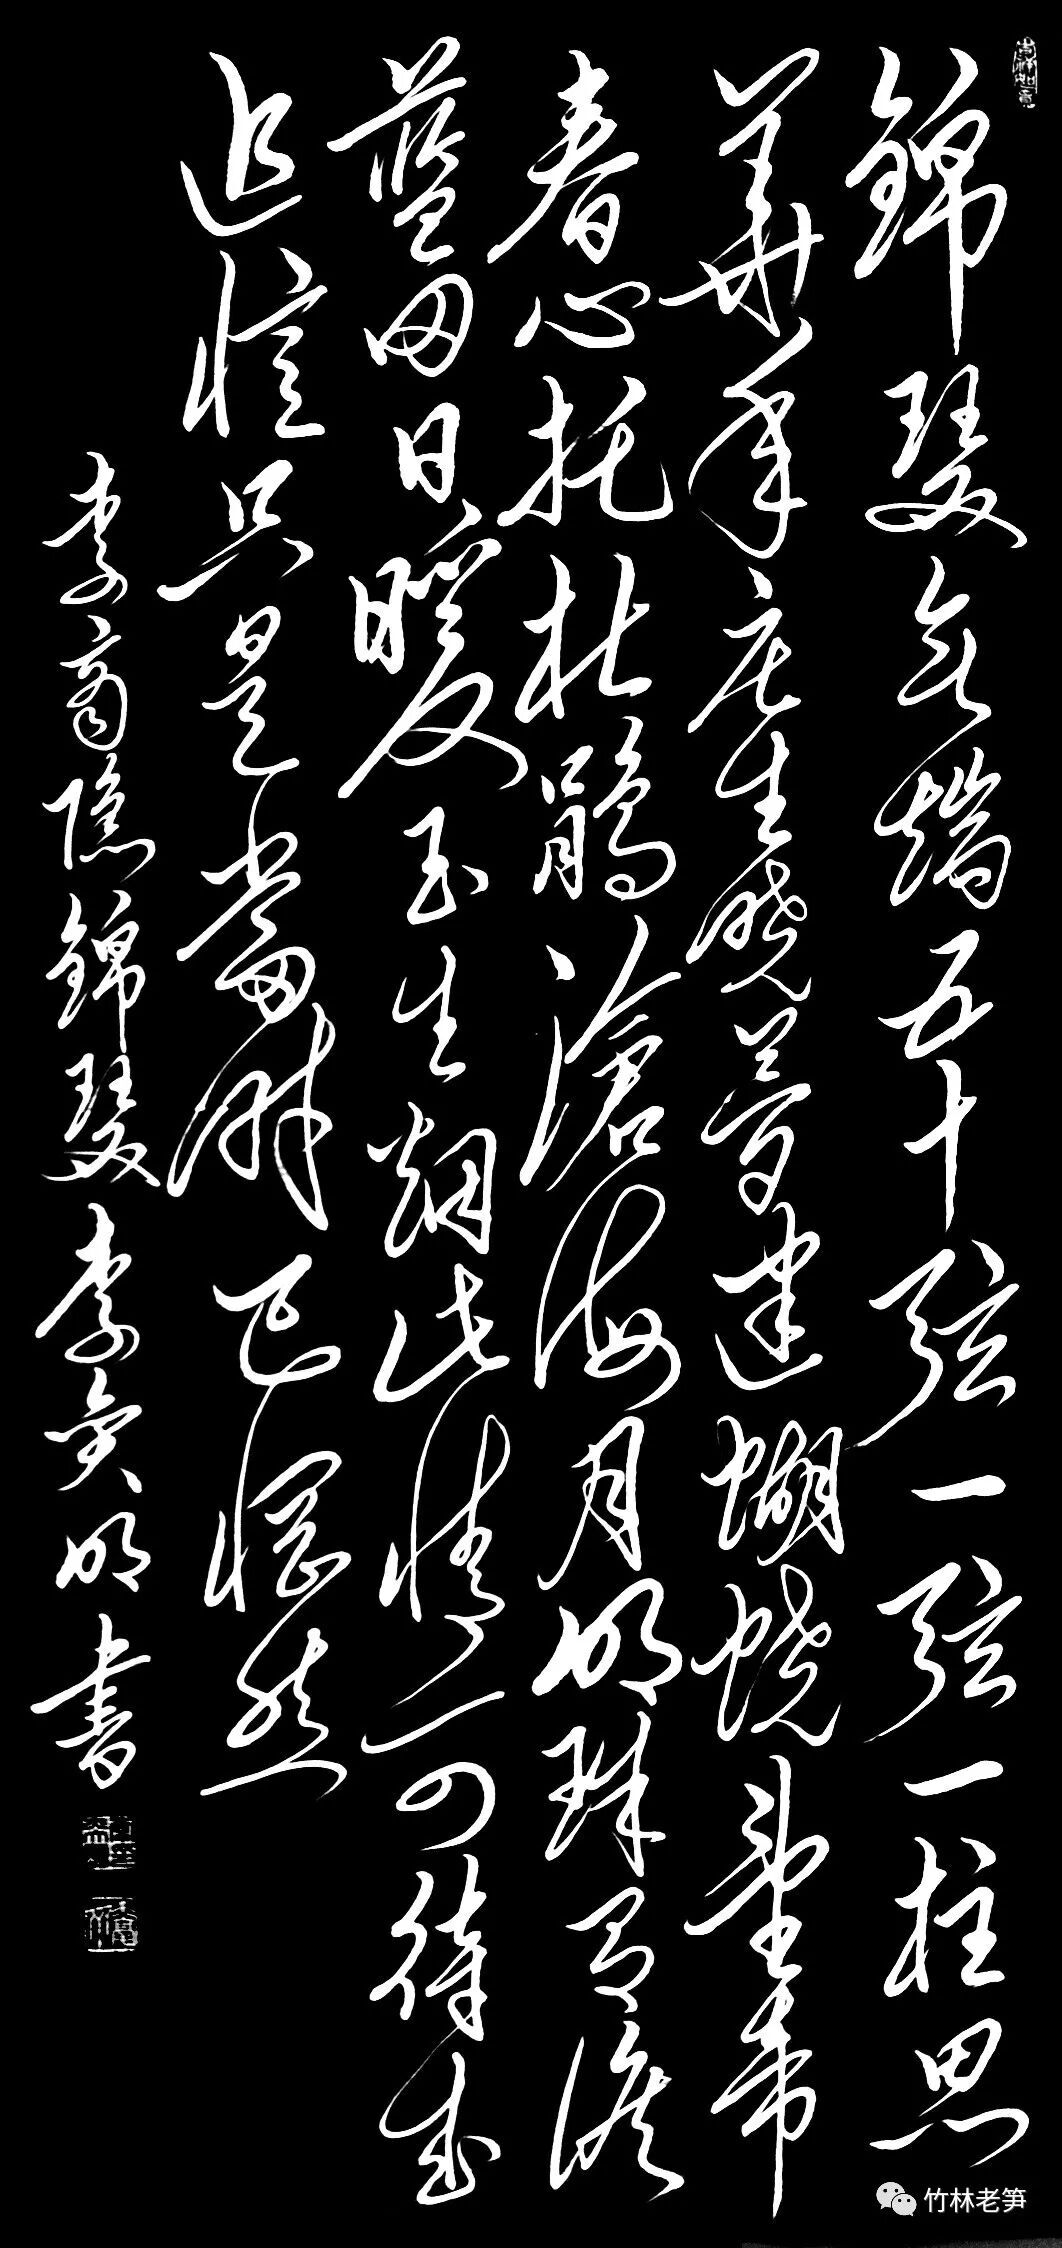 錦瑟無端五十弦一弦一柱思
華年庄生曉夢迷蝴蝶望帝
春心托杜鵑滄海月明珠有淚
藍田日暖玉生烟此情可待成
追憶只是當時已惘然
李商隱錦瑟李奐明書
竹林老笋